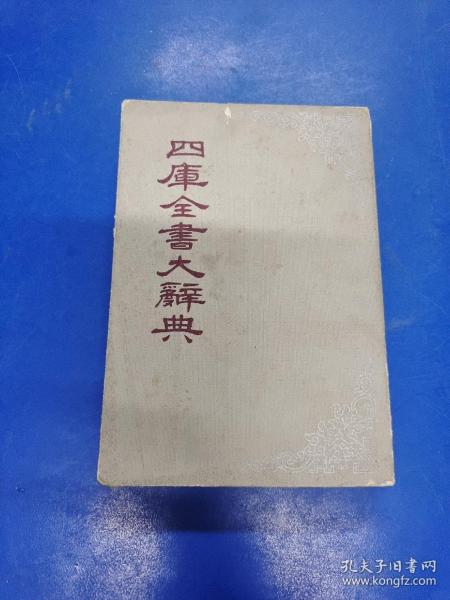 四庫全書大辭典
孔夫子旧书网
www.kongfz.com